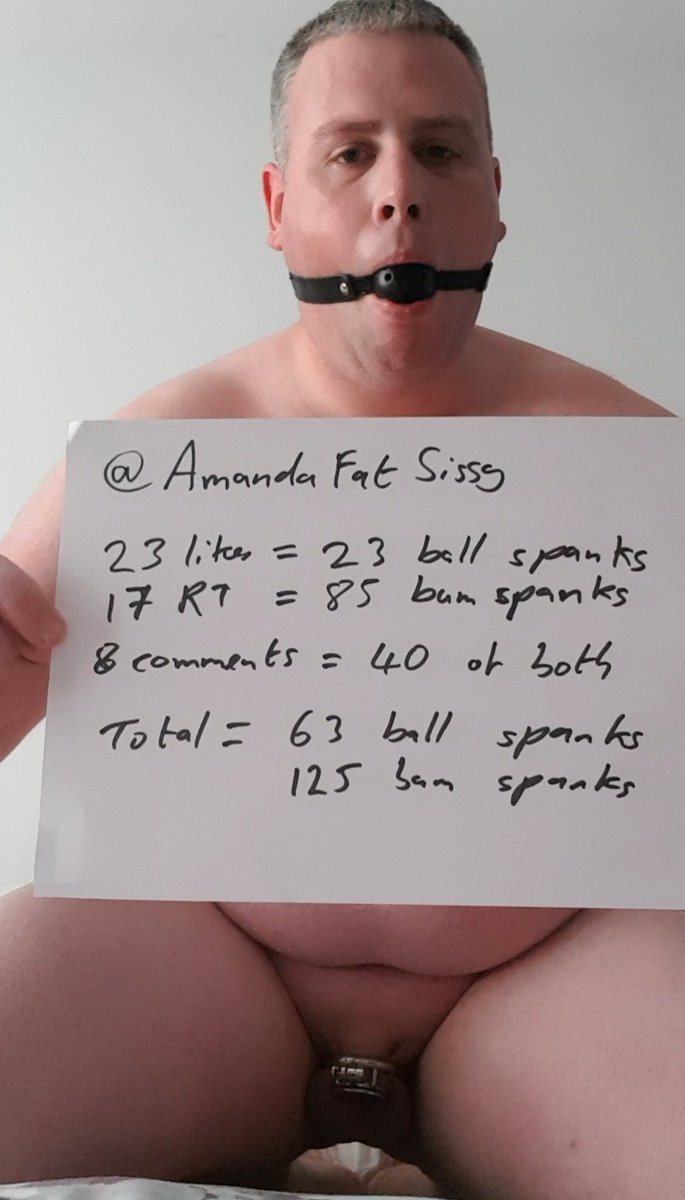 @ Amanda Fat Sissy
23 likes = 23 ball spanks
17 RT = 85 bum spanks
8 comments = 40 of both
Total = 63 ball spanks
125 bum spanks